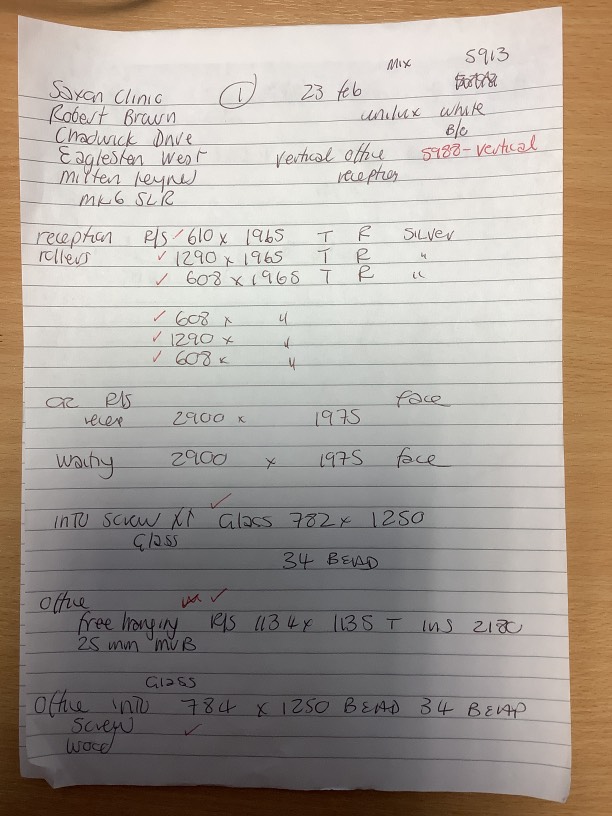 Mix 5913
Saxon Clinic 1 23 feb
Robert Brown unilux white
Chadwick Drive B/O
Eaglesten West vertical office 5988-vertical
Milten Keynes reception
MK6 5LR
reception R/S ✓ 610 x 1965 T R Silver
rollers ✓ 1290 x 1965 T R "
✓ 608 x 1965 T R "
✓ 608 x "
✓ 1290 x "
✓ 608 x "
or R/S face
recep 2900 x 1975
Waiting 2900 x 1975 face
✓
INTO Screw Glass 782 x 1250
Glass
34 BEAD
Office ✓
free hanging R/S 1134 x 1135 T INS 2180
25 mm MVB
Glass
Office INTO 784 x 1250 BEAD 34 BEAD
Screw ✓
Wood